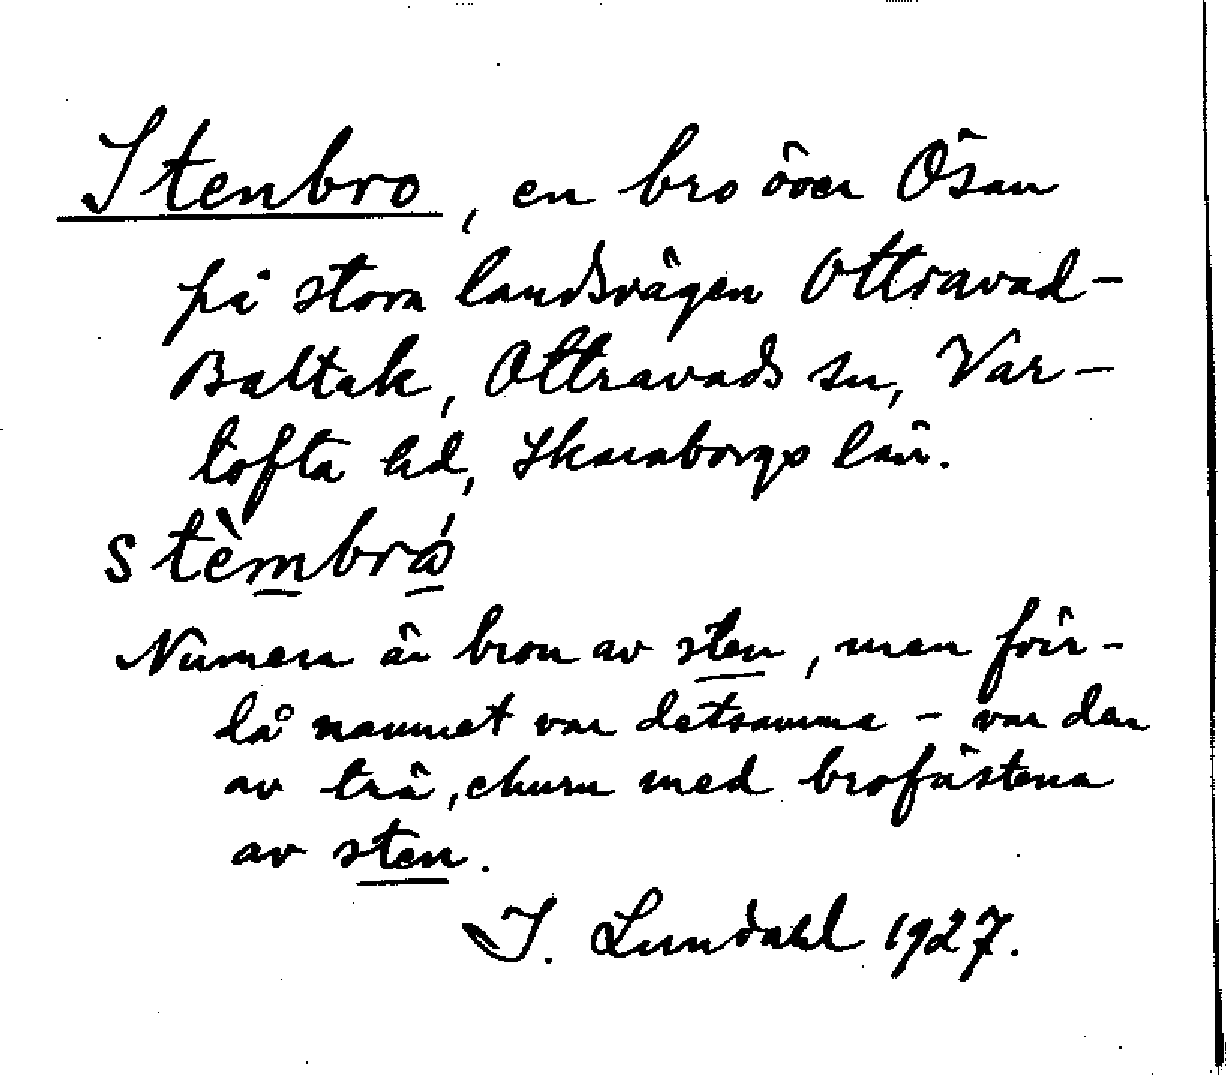 Stenbro, en bro över Ösan
på stora landsvägen Ottravad-
Baltak, Ottravads sn, Var-
tofta hd, Skaraborgs län.
stèmbró
Numera är bron av sten, men förr -
då namnet var detsamma - var den
av trä, churu med brofästena
av sten.
I. Lundahl 1927.